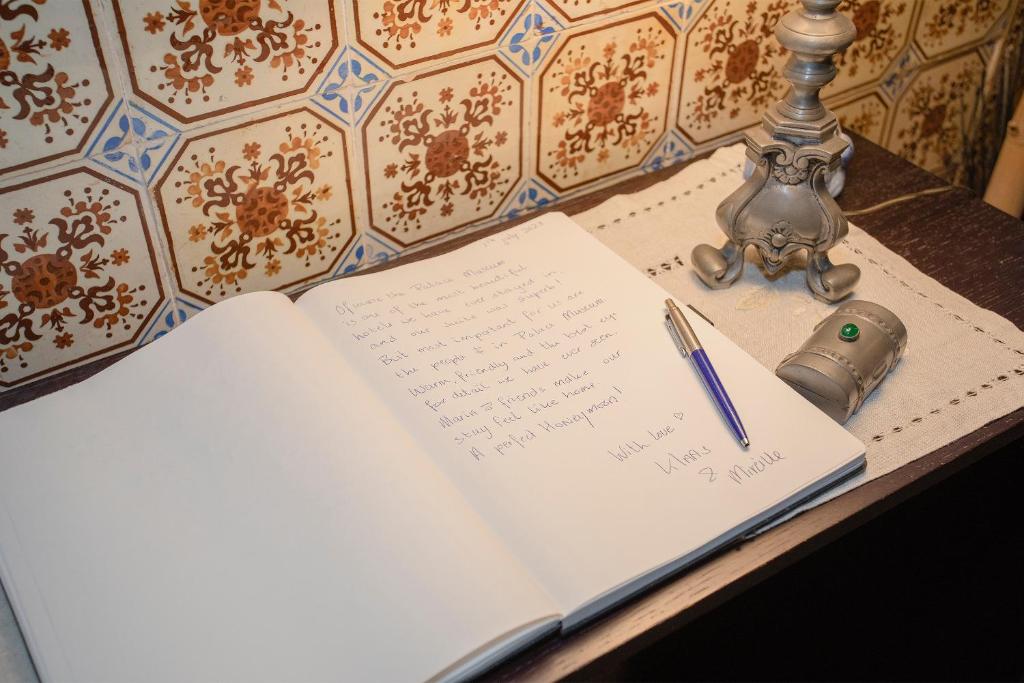 July 2023
Of course the Palace Museum
is one of the most beautiful
hotels we have ever stayed in.
and our suite was superb!
But most important for us are
the people in Palace Museum.
Warm, friendly and the best eye
for detail we have ever seen
Maria & friends make our
stay feel like home.
A perfect Honeymoon!
With love ♡
Klaas
&
Mireille